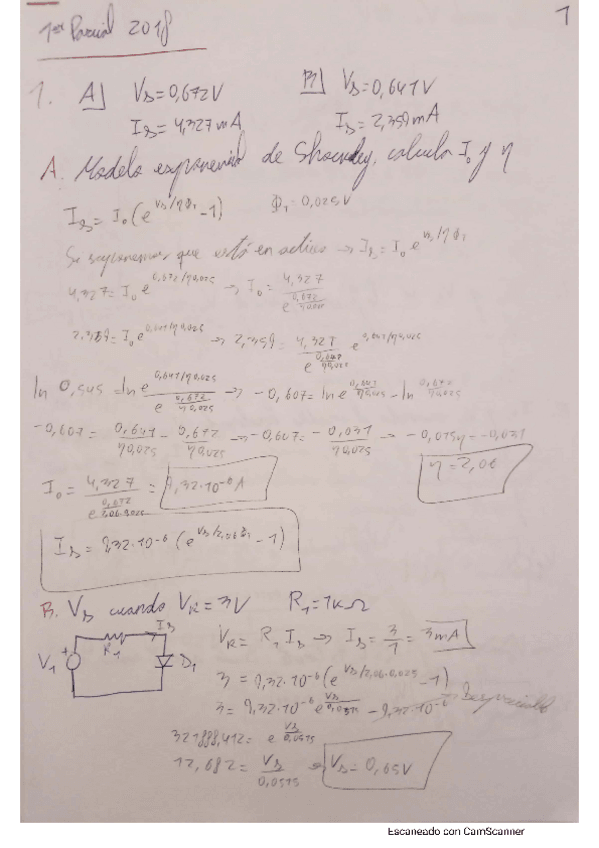 1
1er Parcial 2018
1. A] V_D=0,672V B] V_D=0,641V
I_D=4,327mA I_D=2,359mA
A. Modelo exponencial de Shockley, calcula I_0 y η
I_D=I_0(e^{V_D/ηΦ_T}-1) Φ_T=0,025V
Si suponemos que está en activa → I_D=I_0 e^{V_D/ηΦ_T}
4,327=I_0 e^{0,672/η0,025} → I_0=4,327/e^{0,672/η0,025}
2,359=I_0 e^{0,641/η0,025} → 2,359=4,327/e^{0,672/η0,025} e^{0,641/η0,025}
ln 0,545=ln e^{0,641/η0,025}/e^{0,672/η0,025} → -0,607=ln e^{0,641/η0,025}-ln e^{0,672/η0,025}
-0,607=0,641/η0,025-0,672/η0,025 → -0,607=-0,031/η0,025 → -0,015η=-0,031
η=2,06
I_0=4,327/e^{0,672/2,06·0,025}=9,32·10^{-6}A
I_D=9,32·10^{-6}(e^{V_D/2,06Φ_T}-1)
B. V_D cuando V_R=3V R_1=1KΩ
I_D
R_1
V_1 + D_1
V_R=R_1 I_D → I_D=3/1=3mA
3=9,32·10^{-6}(e^{V_D/2,06·0,025}-1)
3=9,32·10^{-6}e^{V_D/0,0515}-9,32·10^{-6} → Despreciable
321888,412=e^{V_D/0,0515}
12,682=V_D/0,0515 → V_D=0,65V
Escaneado con CamScanner